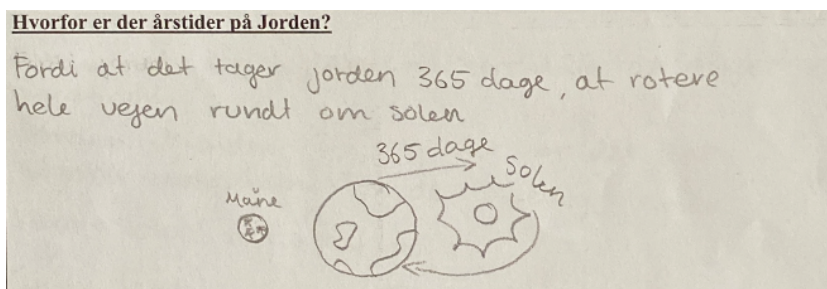 Hvorfor er der årstider på Jorden?
Fordi at det tager jorden 365 dage, at rotere
hele vejen rundt om solen
365 dage
Solen
Måne